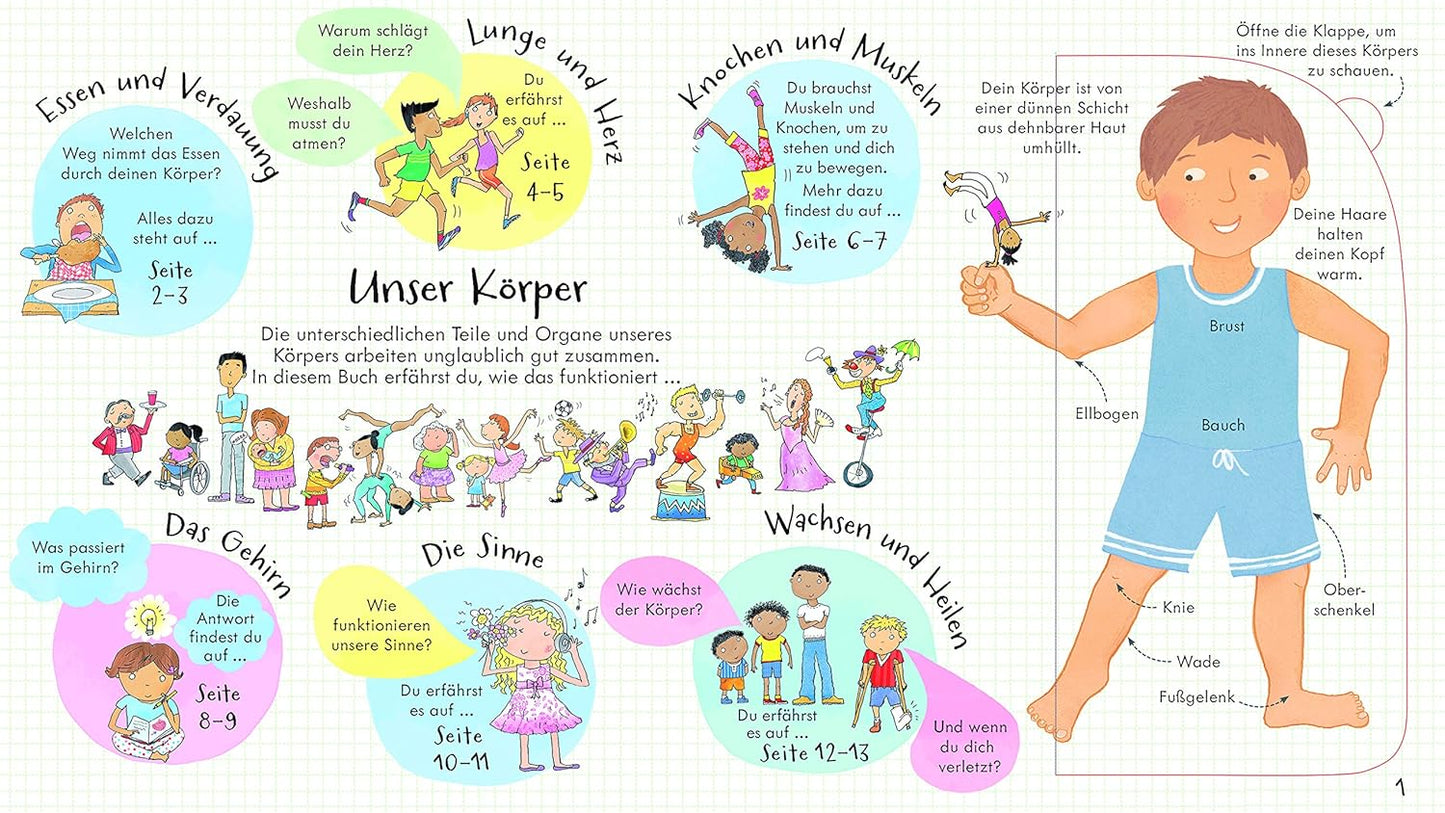 Essen und Verdauung
Welchen
Weg nimmt das Essen
durch deinen Körper?
Alles dazu
steht auf ...
Seite
2–3
Warum schlägt
dein Herz?
Weshalb
musst du
atmen?
Lunge und Herz
Du
erfährst
es auf ...
Seite
4–5
Knochen und Muskeln
Du brauchst
Muskeln und
Knochen, um zu
stehen und dich
zu bewegen.
Mehr dazu
findest du auf ...
Seite 6–7
Unser Körper
Die unterschiedlichen Teile und Organe unseres
Körpers arbeiten unglaublich gut zusammen.
In diesem Buch erfährst du, wie das funktioniert ...
Das Gehirn
Was passiert
im Gehirn?
Die
Antwort
findest du
auf ...
Seite
8–9
Die Sinne
Wie
funktionieren
unsere Sinne?
Du erfährst
es auf ...
Seite
10–11
Wachsen und Heilen
Wie wächst
der Körper?
Du erfährst
es auf ...
Seite 12–13
Und wenn
du dich
verletzt?
Öffne die Klappe, um
ins Innere dieses Körpers
zu schauen.
Dein Körper ist von
einer dünnen Schicht
aus dehnbarer Haut
umhüllt.
Deine Haare
halten
deinen Kopf
warm.
Brust
Ellbogen
Bauch
Ober-
schenkel
Knie
Wade
Fußgelenk
1